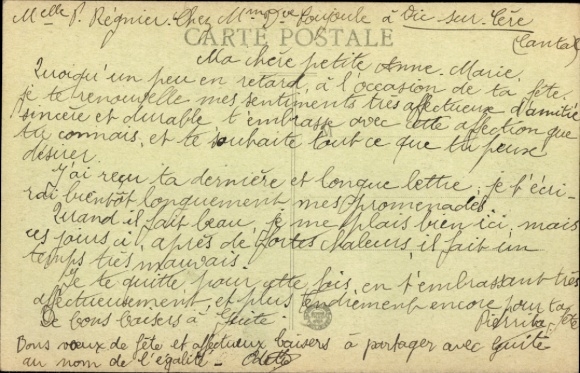 Melle P. Régnier. Chez Mme Vve Loujoule à Vic-sur-Cère
(Cantal)
CARTE POSTALE
Ma chère petite Anne-Marie,
Quoiqu'un peu en retard, à l'occasion de ta fête,
je te renouvelle mes sentiments très affectueux d'amitié
sincère et durable t'embrasse avec cette affection que
tu connais, et te souhaite tout ce que tu peux
désirer.
J'ai reçu ta dernière et longue lettre, je t'écri-
rai bientôt longuement mes promenades.
Quand il fait beau, je me plais bien ici, mais
ces jours ci, après de fortes chaleurs, il fait un
temps très mauvais.
Je te quitte pour cette fois, en t'embrassant très
affectueusement, et plus tendrement encore pour ta
fête
De bons baisers à Guite.
Pierrita
Bons vœux de fête et affectueux baisers à partager avec Guite
au nom de l'égalité - Odette